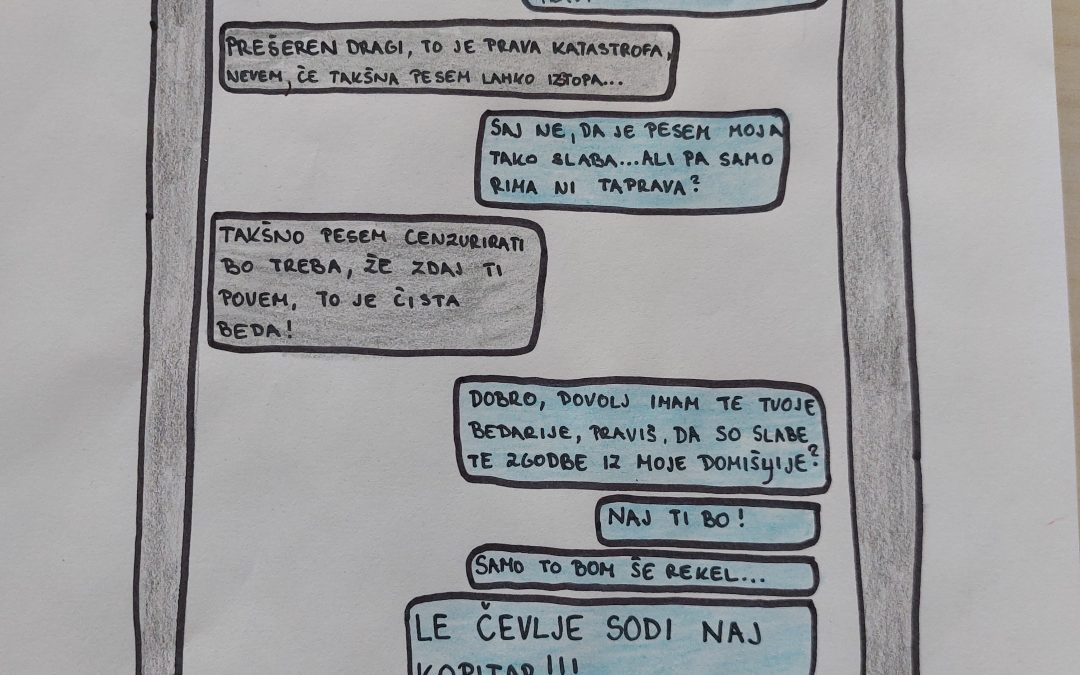 PREŠEREN DRAGI, TO JE PRAVA KATASTROFA,
NEVEM, ČE TAKŠNA PESEM LAHKO IZSTOPA...
SAJ NE, DA JE PESEM MOJA
TAKO SLABA...ALI PA SAMO
RIMA NI TAPRAVA?
TAKŠNO PESEM CENZURIRATI
BO TREBA, ŽE ZDAJ TI
POVEM, TO JE ČISTA
BEDA!
DOBRO, DOVOLJ IMAM TE TVOJE
BEDARIJE, PRAVIŠ, DA SO SLABE
TE ZGODBE IZ MOJE DOMIŠLJIJE?
NAJ TI BO!
SAMO TO BOM ŠE REKEL...
LE ČEVLJE SODI NAJ
KOPITAR!!!